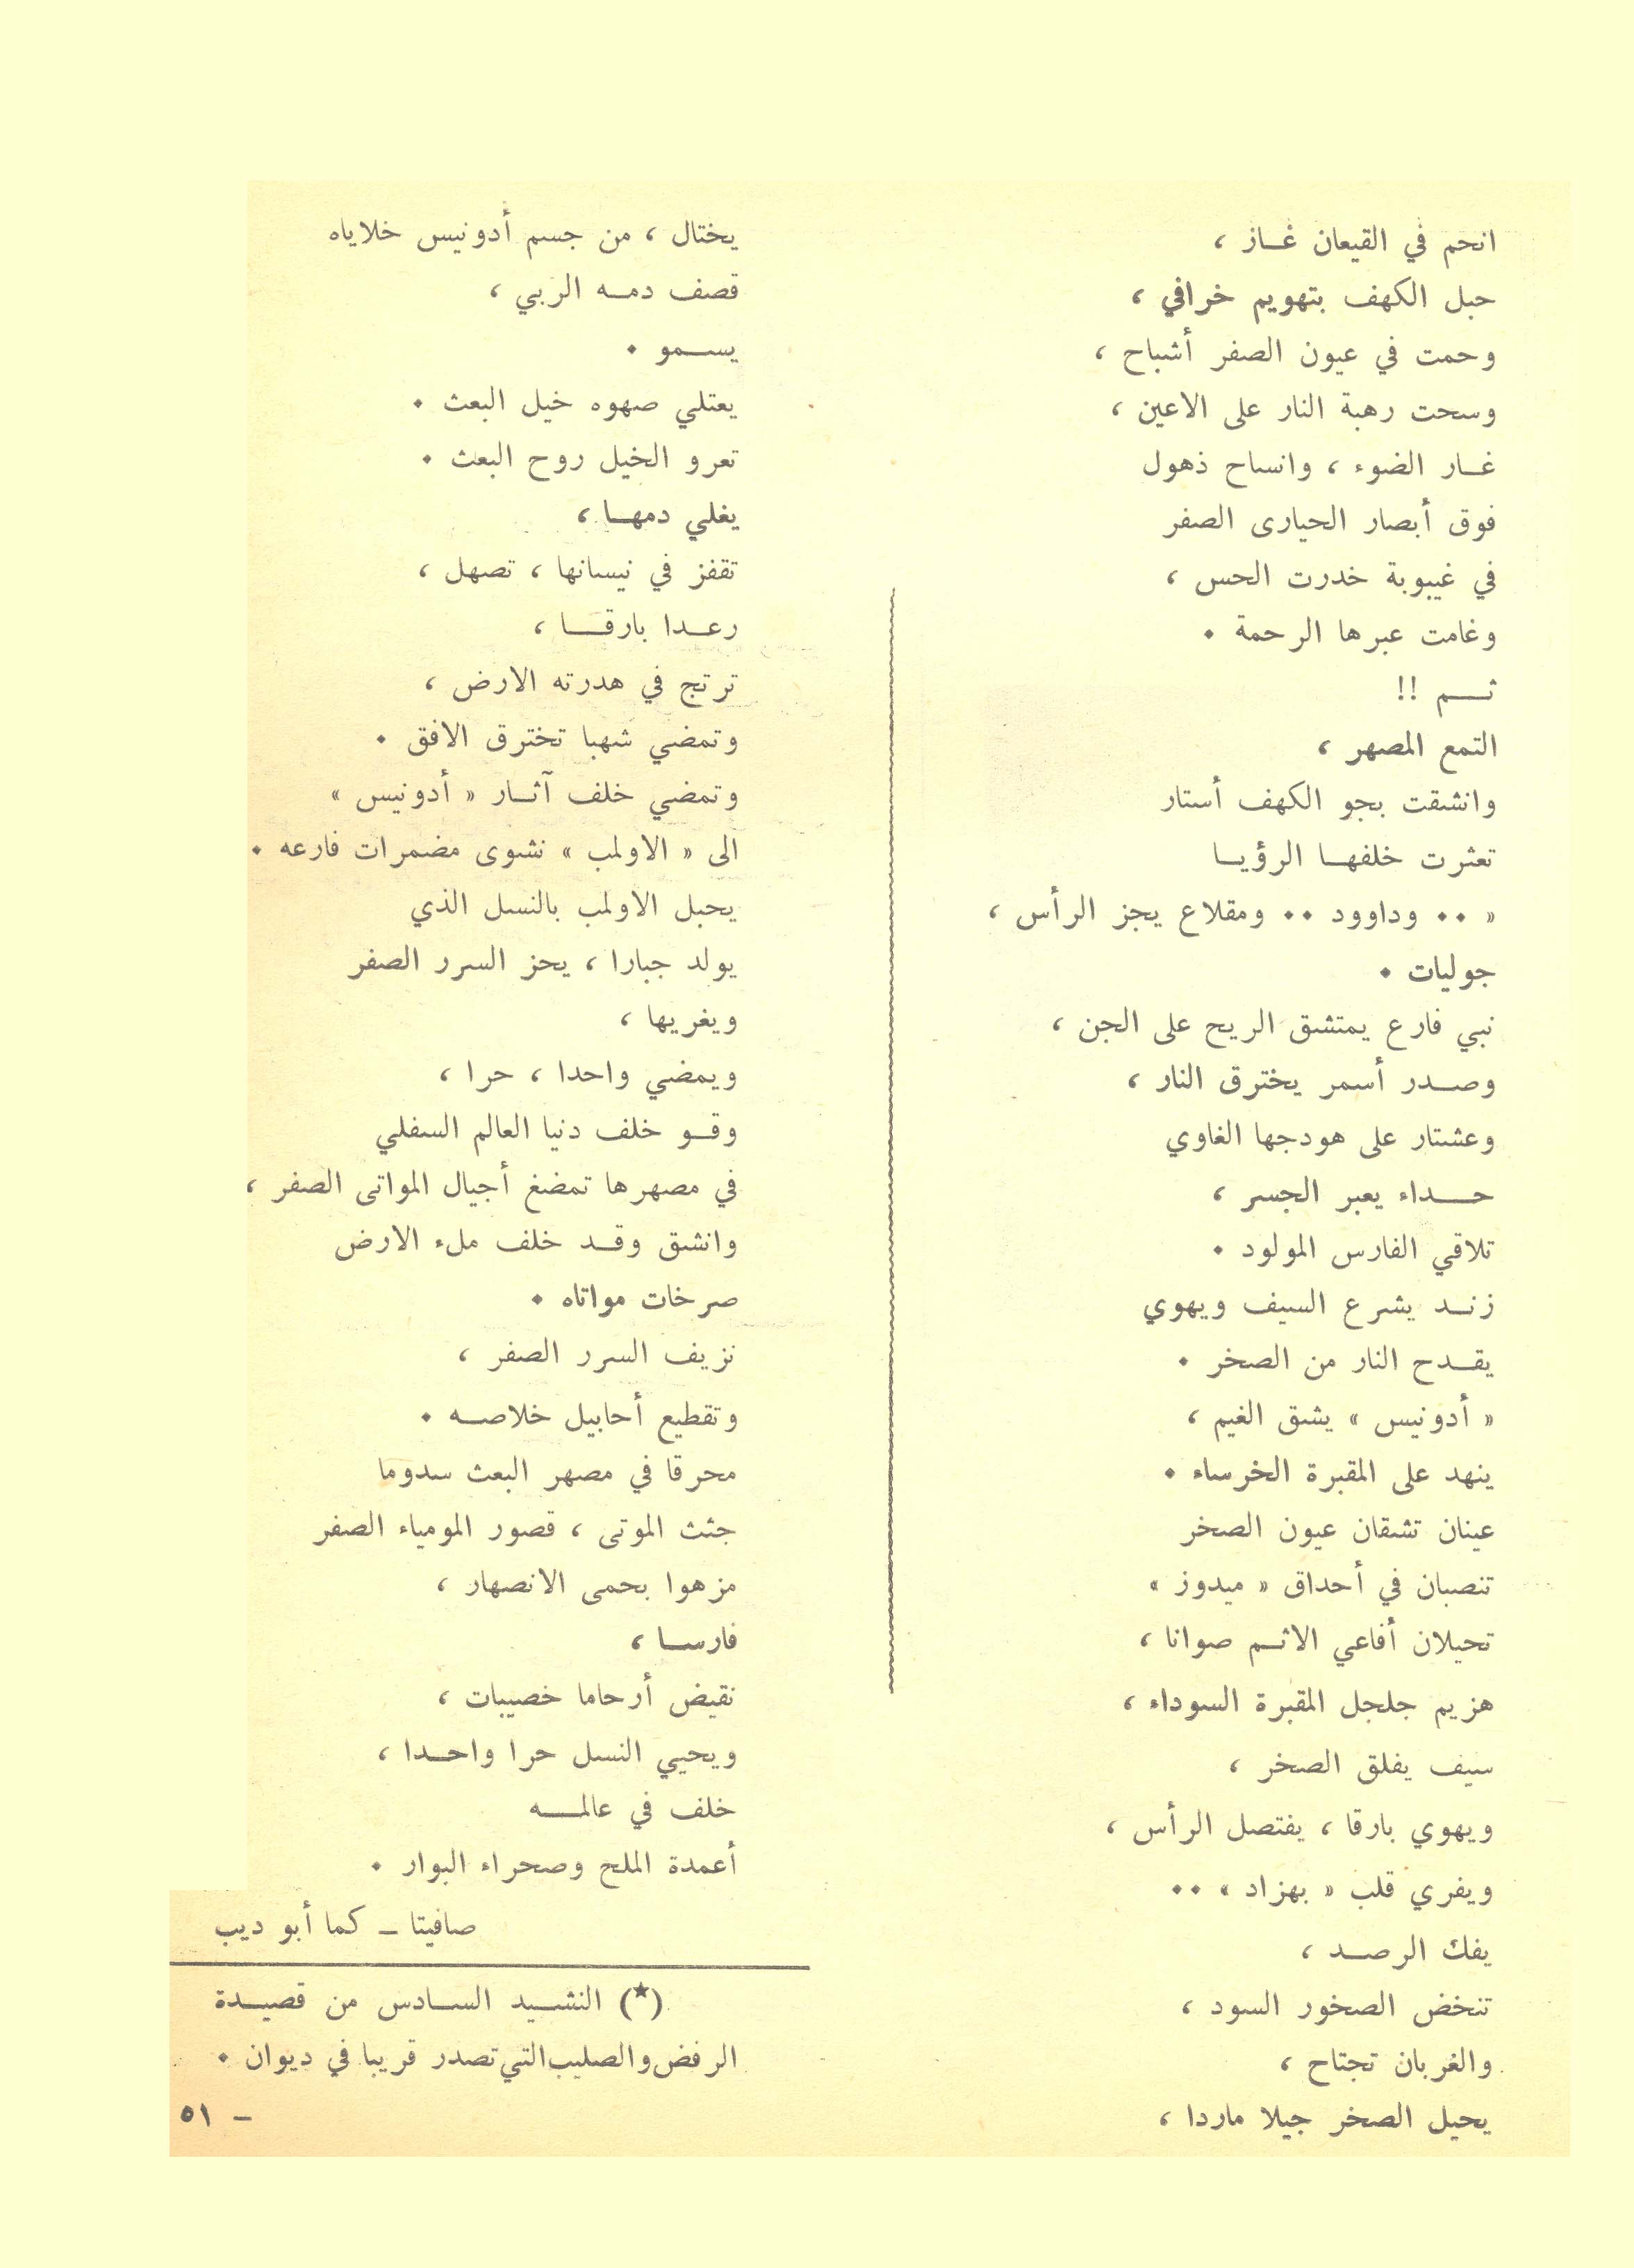 انحم في القيعان غاز ،
حبل الكهف بتهويم خرافي ،
وحمت في عيون الصفر أشباح ،
وسحت رهبة النار على الاعين ،
غار الضوء ، وانساح ذهول
فوق أبصار الحيارى الصفر
في غيبوبة خدرت الحس ،
وغامت عبرها الرحمة .
ثم !!
التمع المصهر ،
وانشقت بجو الكهف أستار
تعثرت خلفها الرؤيا
« .. وداوود .. ومقلاع يجز الرأس ،
جوليات .
نبي فارع يمتشق الريح على الجن ،
وصدر أسمر يخترق النار ،
وعشتار على هودجها الغاوي
حداء يعبر الجسر ،
تلاقي الفارس المولود .
زند يشرع السيف ويهوي
يقدح النار من الصخر .
« أدونيس » يشق الغيم ،
ينهد على المقبرة الخرساء .
عينان تشقان عيون الصخر
تنصبان في أحداق « ميدوز »
تحيلان أفاعي الاثم صوانا ،
هزيم جلجل المقبرة السوداء ،
سيف يفلق الصخر ،
ويهوي بارقا ، يفتصل الرأس ،
ويفري قلب « بهزاد » ..
يفك الرصد ،
تنخض الصخور السود ،
والغربان تجتاح ،
يحيل الصخر جيلا ماردا ،
يختال ، من جسم أدونيس خلاياه
قصف دمه الربي ،
يسمو .
يعتلي صهوه خيل البعث .
تعرو الخيل روح البعث .
يغلي دمها ،
تقفز في نيسانها ، تصهل ،
رعدا بارقا ،
ترتج في هدرته الارض ،
وتمضي شهبا تخترق الافق .
وتمضي خلف آثار « أدونيس »
الى « الاولمب » نشوى مضمرات فارعه .
يحبل الاولمب بالنسل الذي
يولد جبارا ، يحز السرر الصفر
ويغريها ،
ويمضي واحدا ، حرا ،
وقو خلف دنيا العالم السفلي
في مصهرها تمضغ أجيال المواتى الصفر ،
وانشق وقد خلف ملء الارض
صرخات مواتاه .
نزيف السرر الصفر ،
وتقطيع أحابيل خلاصه .
محرقا في مصهر البعث سدوما
جثث الموتى ، قصور المومياء الصفر
مزهوا بحمى الانصهار ،
فارسا ،
نقيض أرحاما خصيبات ،
ويحيي النسل حرا واحدا ،
خلف في عالمه
أعمدة الملح وصحراء البوار .
صافيتا – كما أبو ديب
(★) النشيد السادس من قصيدة
الرفض والصليب التي تصدر قريبا في ديوان .
– ٥١